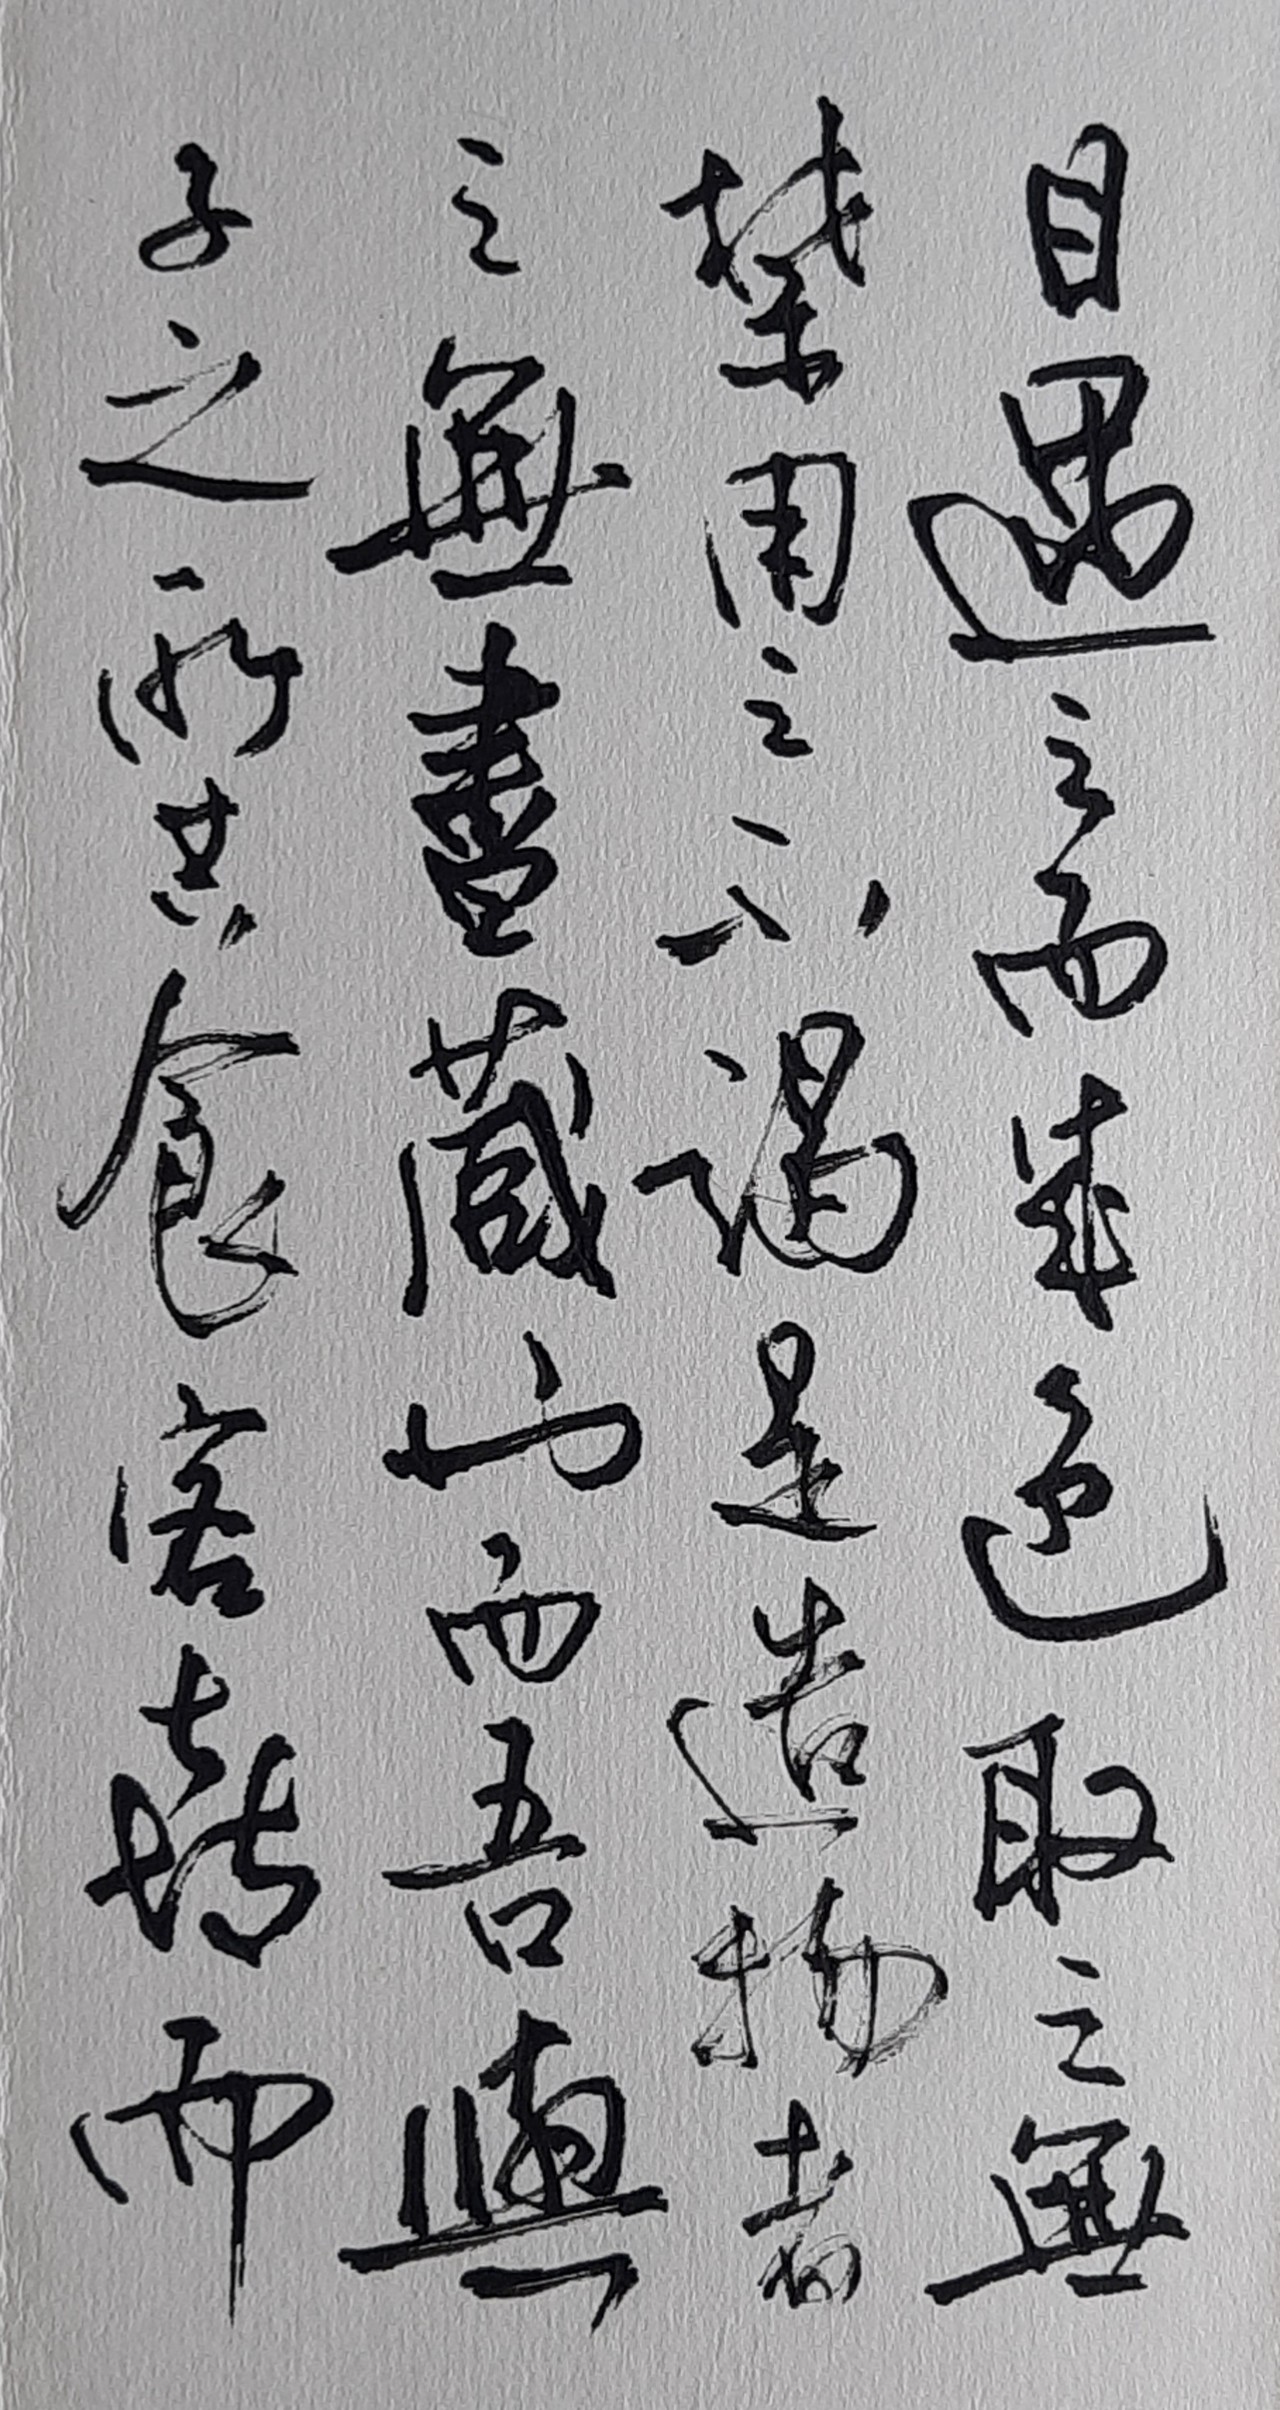 目遇之而成色取之無
禁用之不竭是造物者
之無盡藏也而吾與
子之所共食客喜而